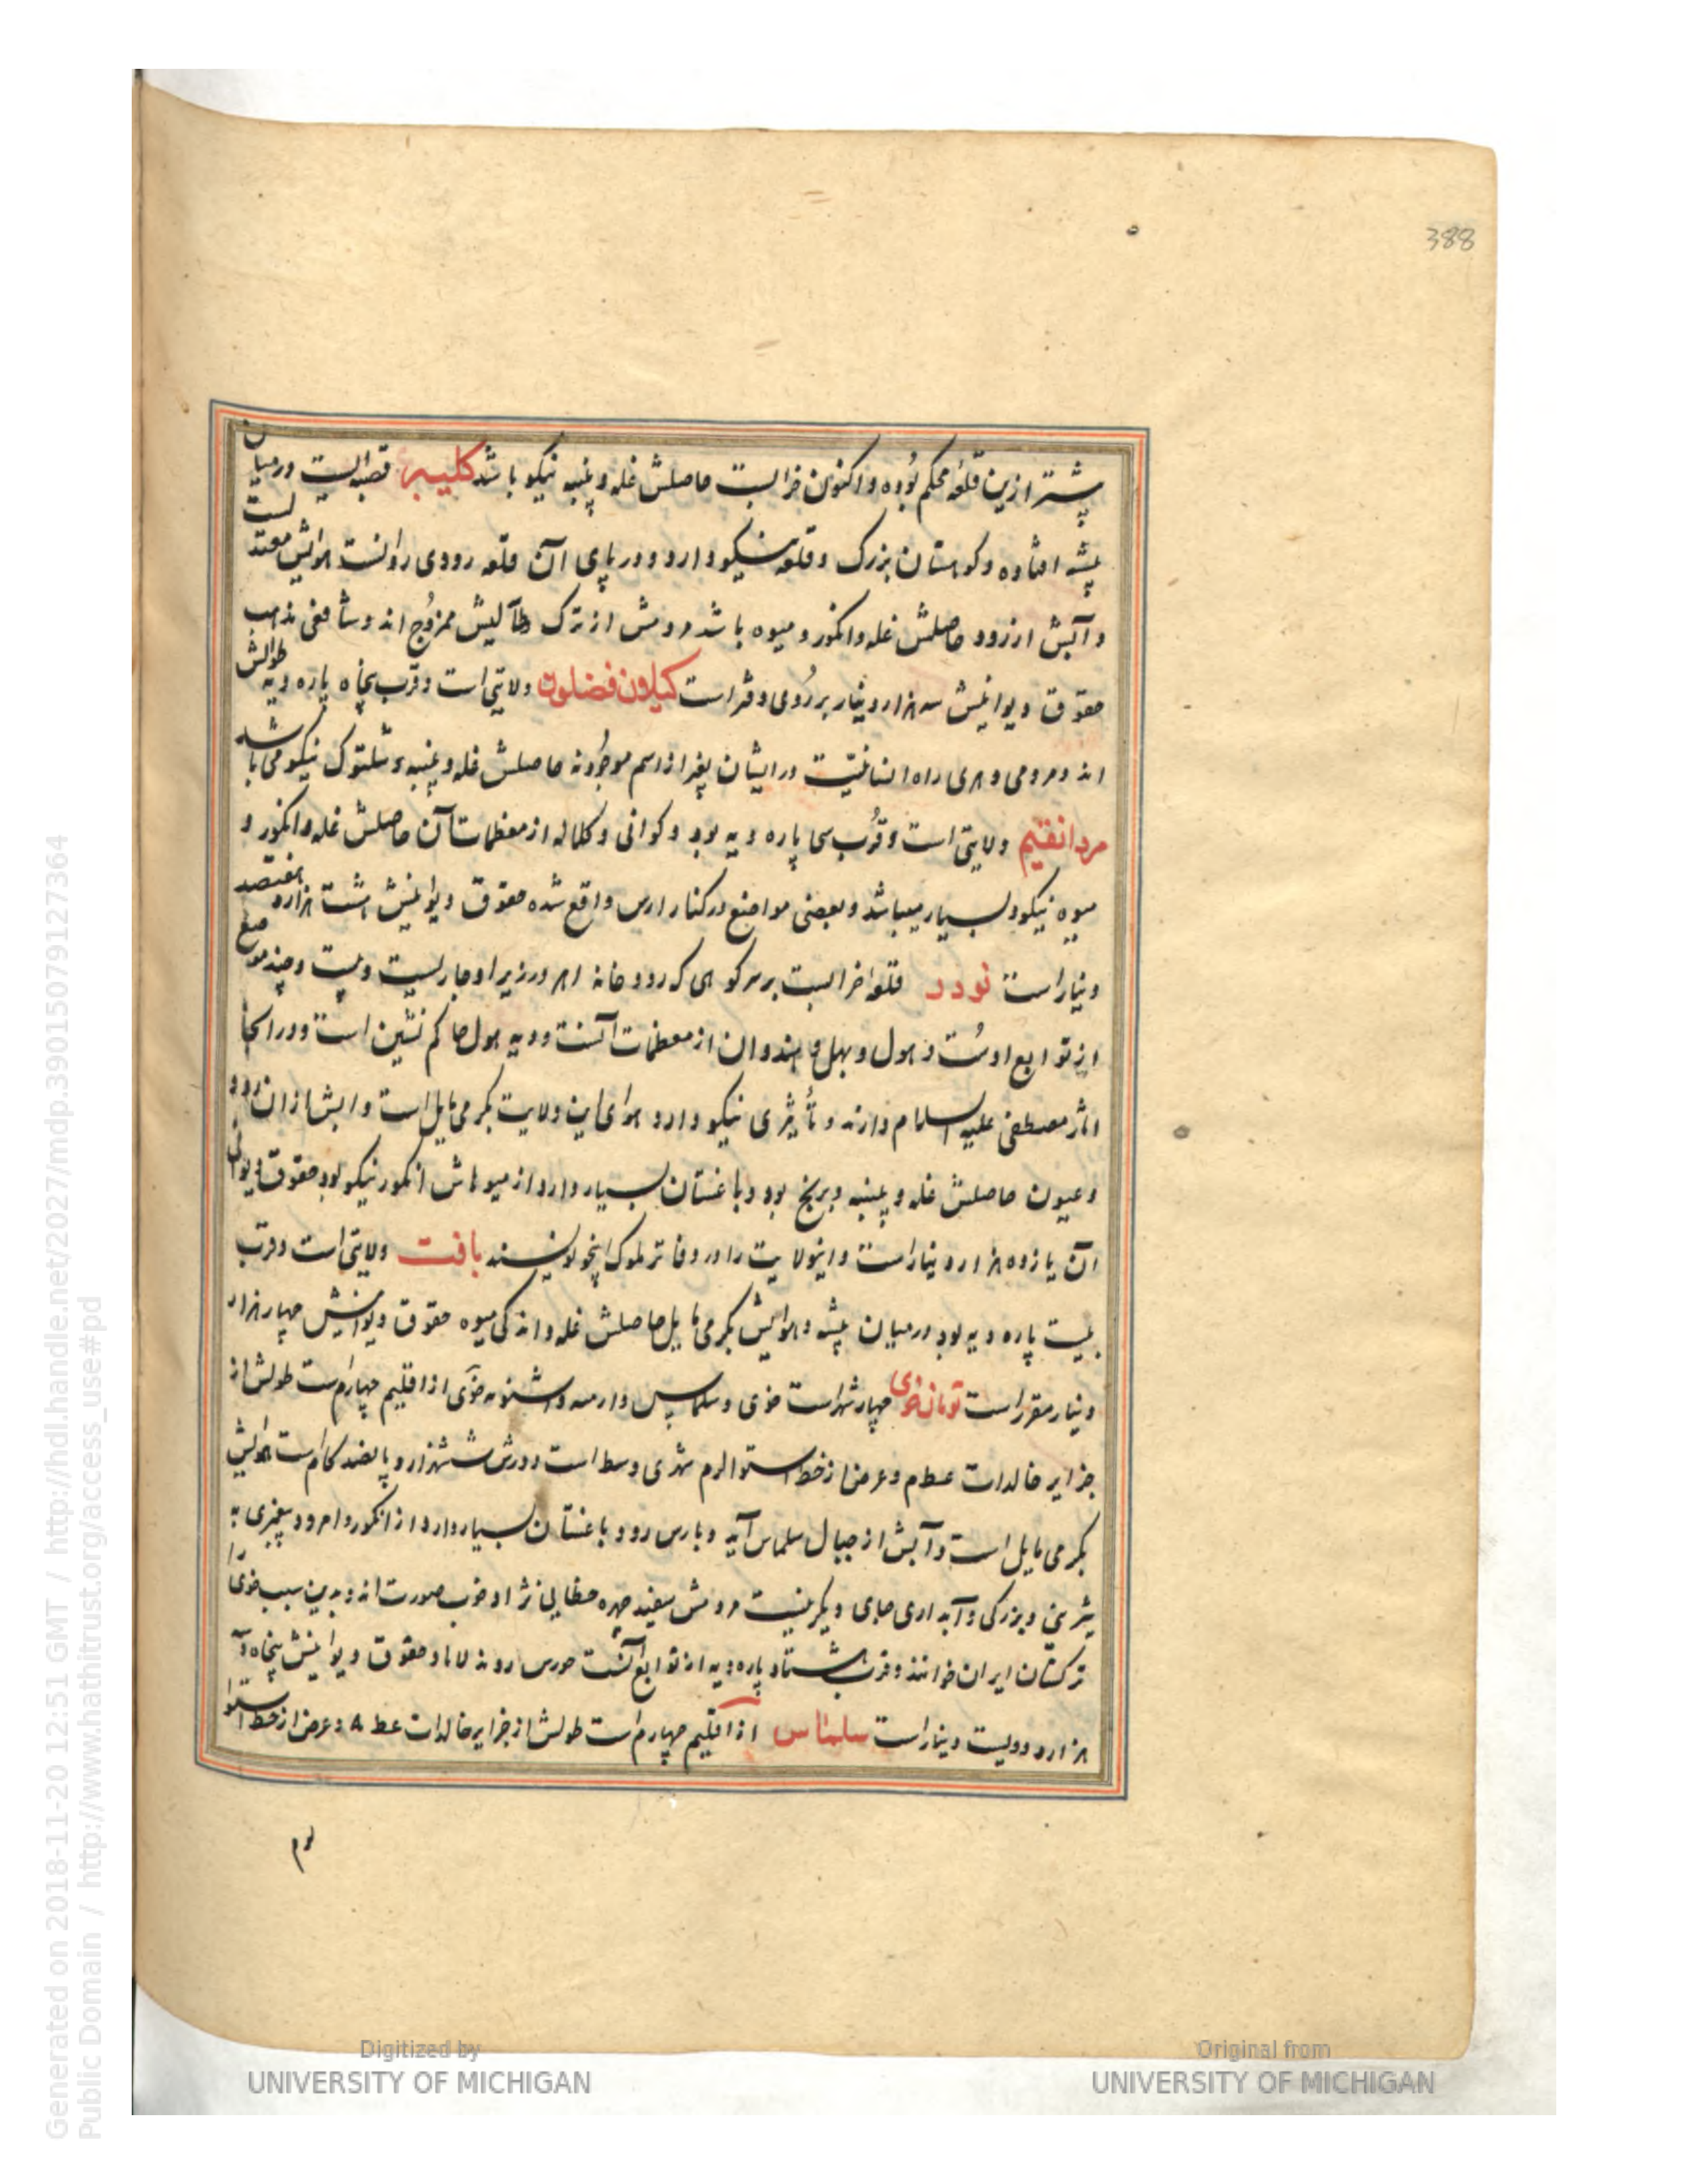 388
پیشتر ازین قلعه محکم بوده و اکنون خرابست حاصلش غله و پنبه نیکو باشد کلیبر قصبه ایست در میان
بیشه افتاده و کوهستان بزرک و قلعه نیکو دارد و در پای آن قلعه رودی روانست هوایش معتدلست
و آبش از رود حاصلش غله و انکور و میوه باشد مردمش از ترک و طالیش ممزوج اند و شافعی مذهب
حقوق دیوانیش سه هزار دینار بر روی دفتر است کیلان فضلون ولایتی است و قرب پنجاه پاره دیه طوالش
اند و مردمی و هری راه انسانیت در ایشان بغیر از اسم موجود نه حاصلش غله و پنبه و شلتوک نیکو می باشد
مردانقیم ولایتی است و قرب سی پاره دیه بود و کوانی و کلاله از معظمات آن حاصلش غله و انکور و
میوه نیکو و بسیار میباشد و بعضی مواضع در کنار ارس واقع شده حقوق دیوانیش هشت هزار و هفتصد
دینار است نودد قلعه خرابست بر سر کوهی که رودخانه اهر در زیر او جاریست و بیست و چند موضع
از توابع اوست و هول و بهل و هندوان از معظمات آنست و دیه هول حاکم نشین است و در انجا
اثار مصطفی علیه السلام دارند و تأثیری نیکو دارد هوای این ولایت بکرمی مایل است و ابش از ان رود
و عیون حاصلش غله و پنبه و برنج بود و باغستان بسیار دارد از میوهاش انکور نیکو بود حقوق دیوانی
آن یازده هزار دینار است و اینولایت را در دفاتر ملوک اینجو نویسند بافت ولایتی است و قرب
بیست پاره دیه بود در میان بیشه و هوایش بکرمی مایل حاصلش غله و اندکی میوه حقوق دیوانیش چهار هزار
دینار مقرر است تومان خوی چهار شهر است خوی و سلماس و ارمیه و اشنویه خوی از اقلیم چهارم است طولش از
جزایر خالدات عطم و عرض از خط استوا لزم شهری وسط است دورش ششهزار و پانصد کام است هوایش
بکرمی مایل است و آبش از جبال سلماس آید و بارس رود و باغستان بسیار دارد از انکور و امرود پیغمبری به
شیرینی و بزرکی و آبداری جای دیکر نیست مردمش سفید چهره خطایی نژاد و خوب صورت اند و بدین سبب خوی را
ترکستان ایران خوانند و قرب هشتاد پاره دیه از توابع آنست حقوق دیوانیش پنجاه و
هزار و دویست دینار است سلماس از اقلیم چهارم است طولش از جزایر خالدات عط ۸ و عرض از خط استوا
Generated on 2018-11-20 12:51 GMT / http://hdl.handle.net/2027/mdp.39015079127364
Public Domain / http://www.hathitrust.org/access_use#pd
Digitized by
UNIVERSITY OF MICHIGAN
Original from
UNIVERSITY OF MICHIGAN